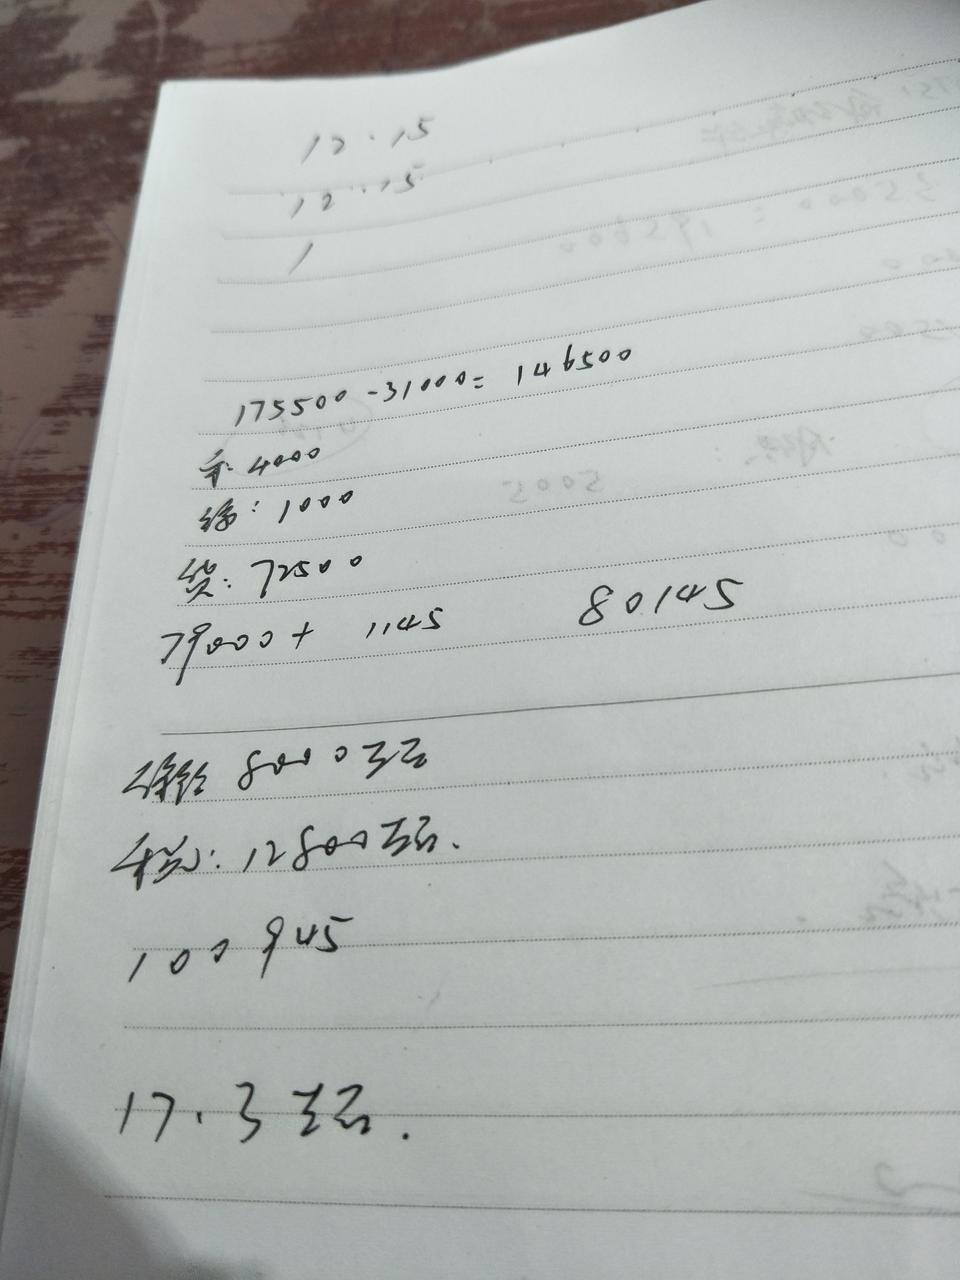 12.15
12.15
1
175500-31000=146500
手:4000
: 1000
货: 72500
79000+ 1145 80145
8000美元
税: 12800美元.
100945
17.3美元.